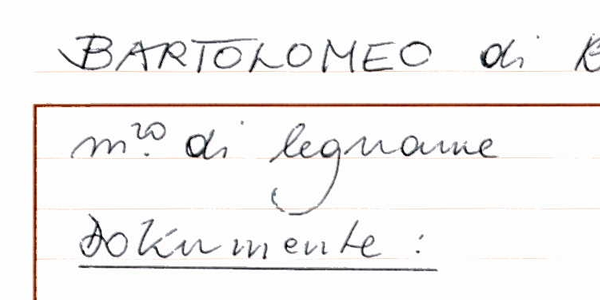 BARTOLOMEO di B
m.ro di legname
Dokumente :